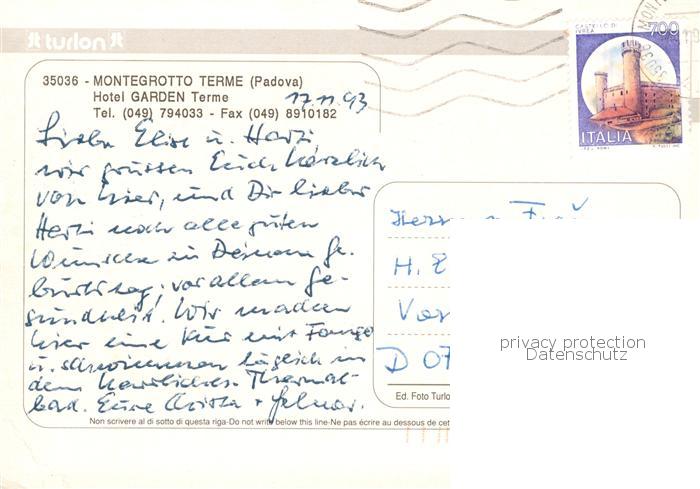 turlon
CASTELLO DI IVREA
700
ITALIA
35036 - MONTEGROTTO TERME (Padova)
Hotel GARDEN Terme
17.11.93
Tel. (049) 794033 - Fax (049) 8910182
Liebe Elise u. Herzi
wir grüssen Euch herzlich
von hier, und Dir lieber
Herzi noch alle guten
Wünsche zu Deinem Ge-
burtstag, vor allem Ge-
sundheit. Wir machen
hier eine Kur mit Fango
u. schwimmen täglich in
dem herrlichen Thermal-
bad. Eure +
Herrn u. Frau
H. E
Vor
D 07
privacy protection
Datenschutz
Ed. Foto Turlo
Non scrivere al di sotto di questa riga-Do not write below this line-Ne pas écrire au dessous de cet